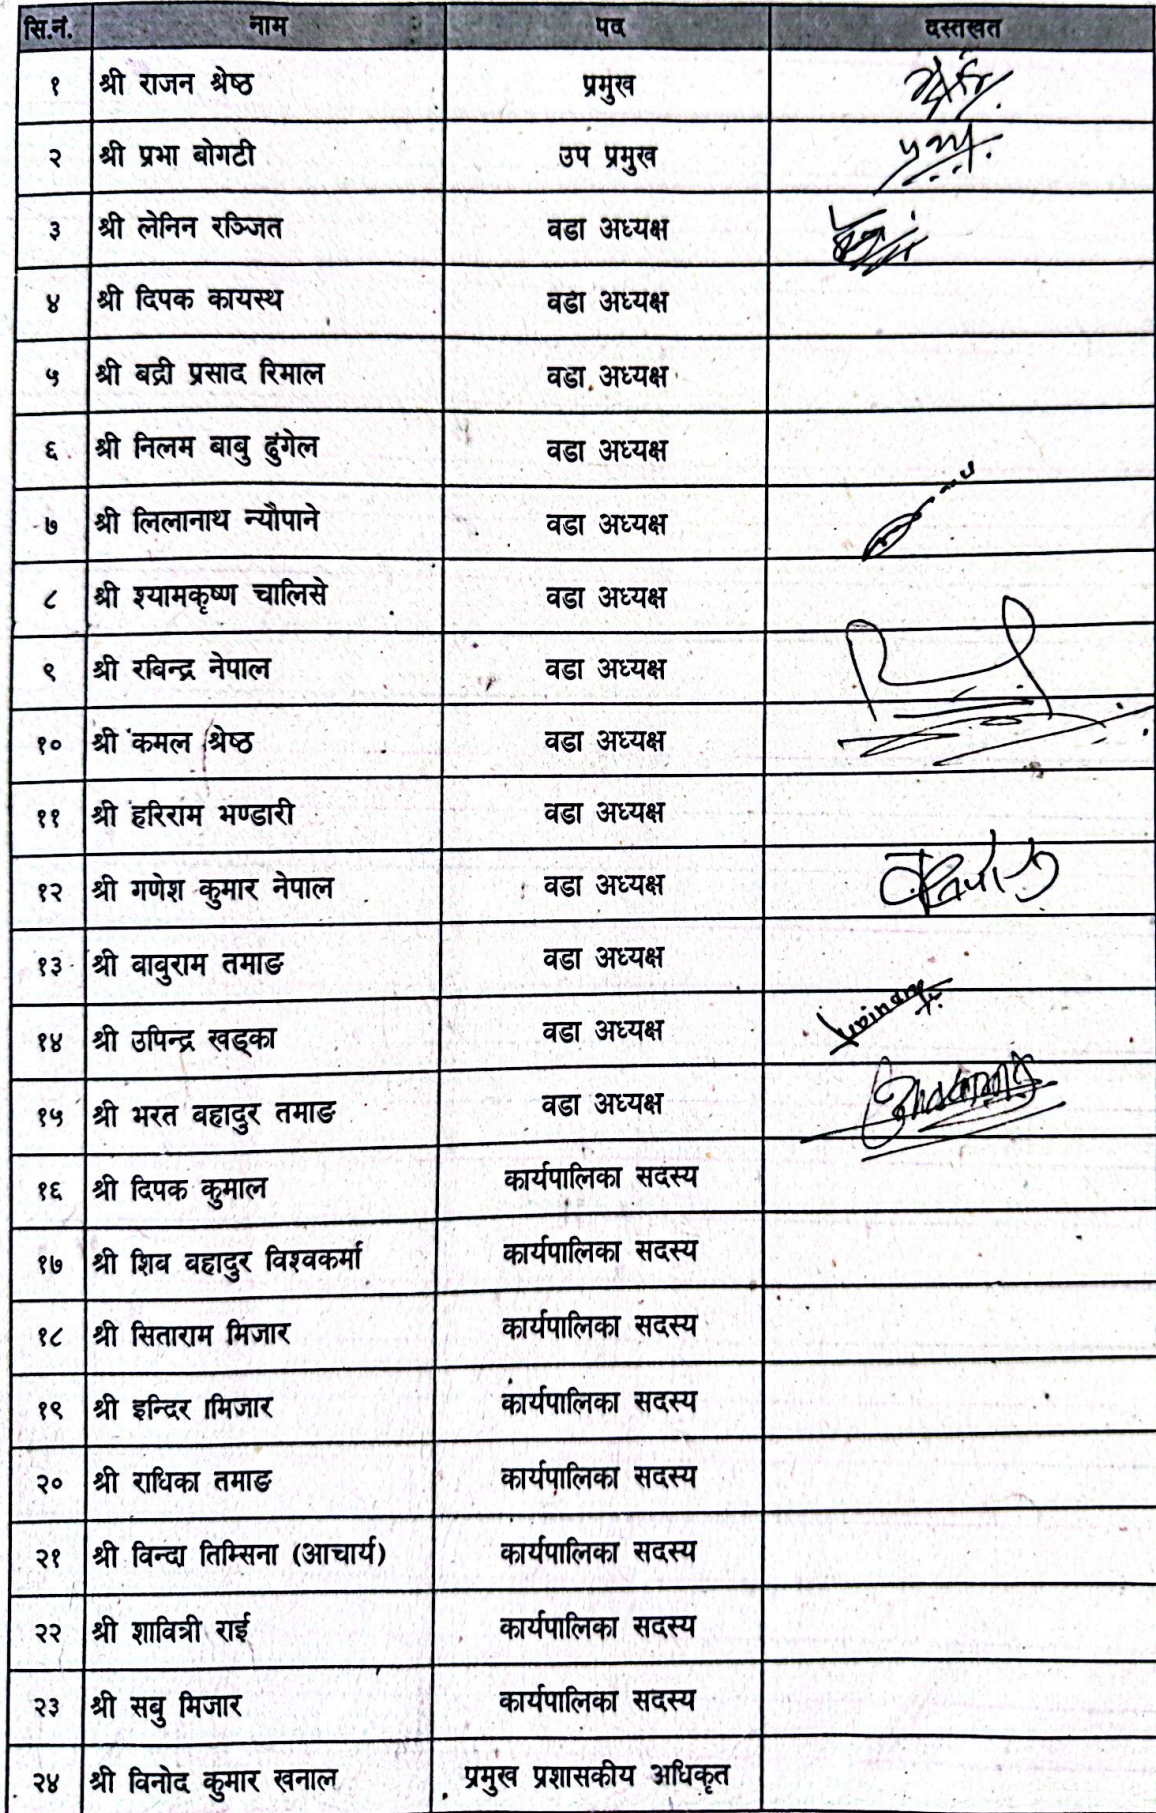 सि.नं. नाम पद दस्तखत
१ श्री राजन श्रेष्ठ प्रमुख
२ श्री प्रभा बोगटी उप प्रमुख
३ श्री लेनिन रञ्जित वडा अध्यक्ष
४ श्री दिपक कायस्थ वडा अध्यक्ष
५ श्री बद्री प्रसाद रिमाल वडा अध्यक्ष
६ श्री निलम बाबु ढुंगेल वडा अध्यक्ष
७ श्री लिलानाथ न्यौपाने वडा अध्यक्ष
८ श्री श्यामकृष्ण चालिसे वडा अध्यक्ष
९ श्री रबिन्द्र नेपाल वडा अध्यक्ष
१० श्री कमल श्रेष्ठ वडा अध्यक्ष
११ श्री हरिराम भण्डारी वडा अध्यक्ष
१२ श्री गणेश कुमार नेपाल वडा अध्यक्ष
१३ श्री वाबुराम तमाङ वडा अध्यक्ष
१४ श्री उपिन्द्र खड्का वडा अध्यक्ष
१५ श्री भरत बहादुर तमाङ वडा अध्यक्ष
१६ श्री दिपक कुमाल कार्यपालिका सदस्य
१७ श्री शिब बहादुर विश्वकर्मा कार्यपालिका सदस्य
१८ श्री सिताराम मिजार कार्यपालिका सदस्य
१९ श्री इन्दिर ामिजार कार्यपालिका सदस्य
२० श्री राधिका तमाङ कार्यपालिका सदस्य
२१ श्री विन्दा तिम्सिना (आचार्य) कार्यपालिका सदस्य
२२ श्री शावित्री राई कार्यपालिका सदस्य
२३ श्री सबु मिजार कार्यपालिका सदस्य
२४ श्री विनोद कुमार खनाल प्रमुख प्रशासकीय अधिकृत